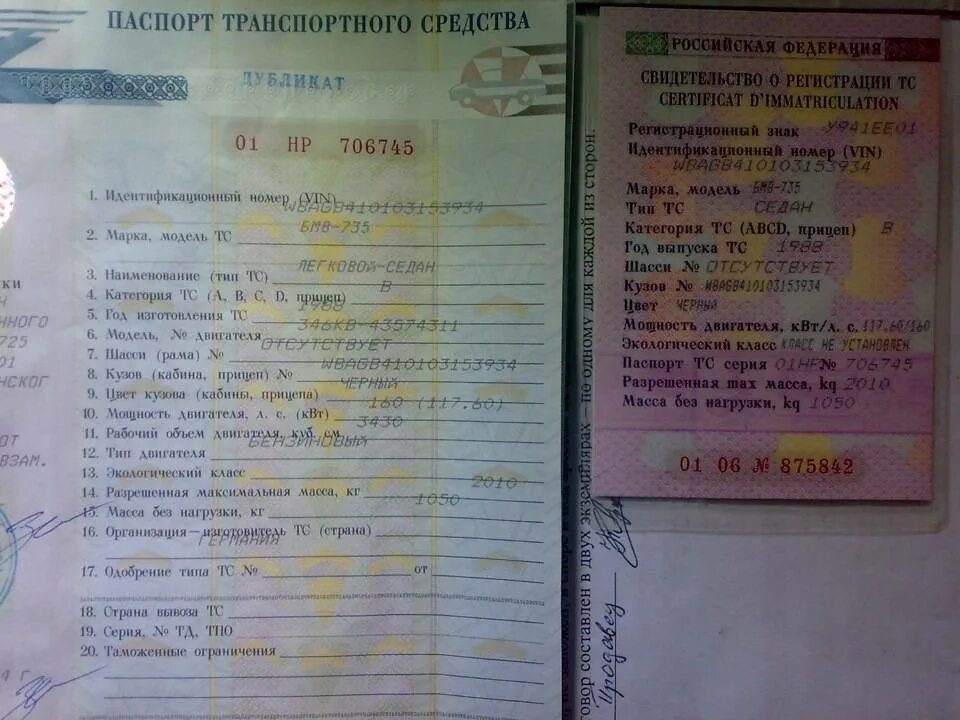 ПАСПОРТ ТРАНСПОРТНОГО СРЕДСТВА
ДУБЛИКАТ
01 НР 706745
1. Идентификационный номер (VIN) WBAGB410103153934
2. Марка, модель ТС БМВ-735
3. Наименование (тип ТС) ЛЕГКОВОЙ-СЕДАН
4. Категория ТС (А, В, С, D, прицеп) В
5. Год изготовления ТС 1988
6. Модель, № двигателя 346KB-43574311
7. Шасси (рама) № ОТСУТСТВУЕТ
8. Кузов (кабина, прицеп) № WBAGB410103153934
9. Цвет кузова (кабины, прицепа) ЧЕРНЫЙ
10. Мощность двигателя, л. с. (кВт) 160 (117.60)
11. Рабочий объем двигателя, куб. см 3430
12. Тип двигателя БЕНЗИНОВЫЙ
13. Экологический класс
14. Разрешенная максимальная масса, кг 2010
15. Масса без нагрузки, кг 1050
16. Организация—изготовитель ТС (страна)
ГЕРМАНИЯ
17. Одобрение типа ТС № от
18. Страна вывоза ТС
19. Серия, № ТД, ТПО
20. Таможенные ограничения
КИ
Н
ННОГО
725
01
НСКОГ
ОТ
ВЗАМ.
4 г
РОССИЙСКАЯ ФЕДЕРАЦИЯ
СВИДЕТЕЛЬСТВО О РЕГИСТРАЦИИ ТС
CERTIFICAT D'IMMATRICULATION
Регистрационный знак У941ЕЕ01
Идентификационный номер (VIN)
WBAGB410103153934
Марка, модель БМВ-735
Тип ТС СЕДАН
Категория ТС (ABCD, прицеп) В
Год выпуска ТС 1988
Шасси № ОТСУТСТВУЕТ
Кузов № WBAGB410103153934
Цвет ЧЕРНЫЙ
Мощность двигателя, кВт/л. с. 117.60/160
Экологический класс КЛАСС НЕ УСТАНОВЛЕН
Паспорт ТС серия 01НР № 706745
Разрешенная max масса, kg 2010
Масса без нагрузки, kg 1050
01 06 № 875842
овор составлен в двух экземплярах — по одному для каждой из сторон.
Продавец